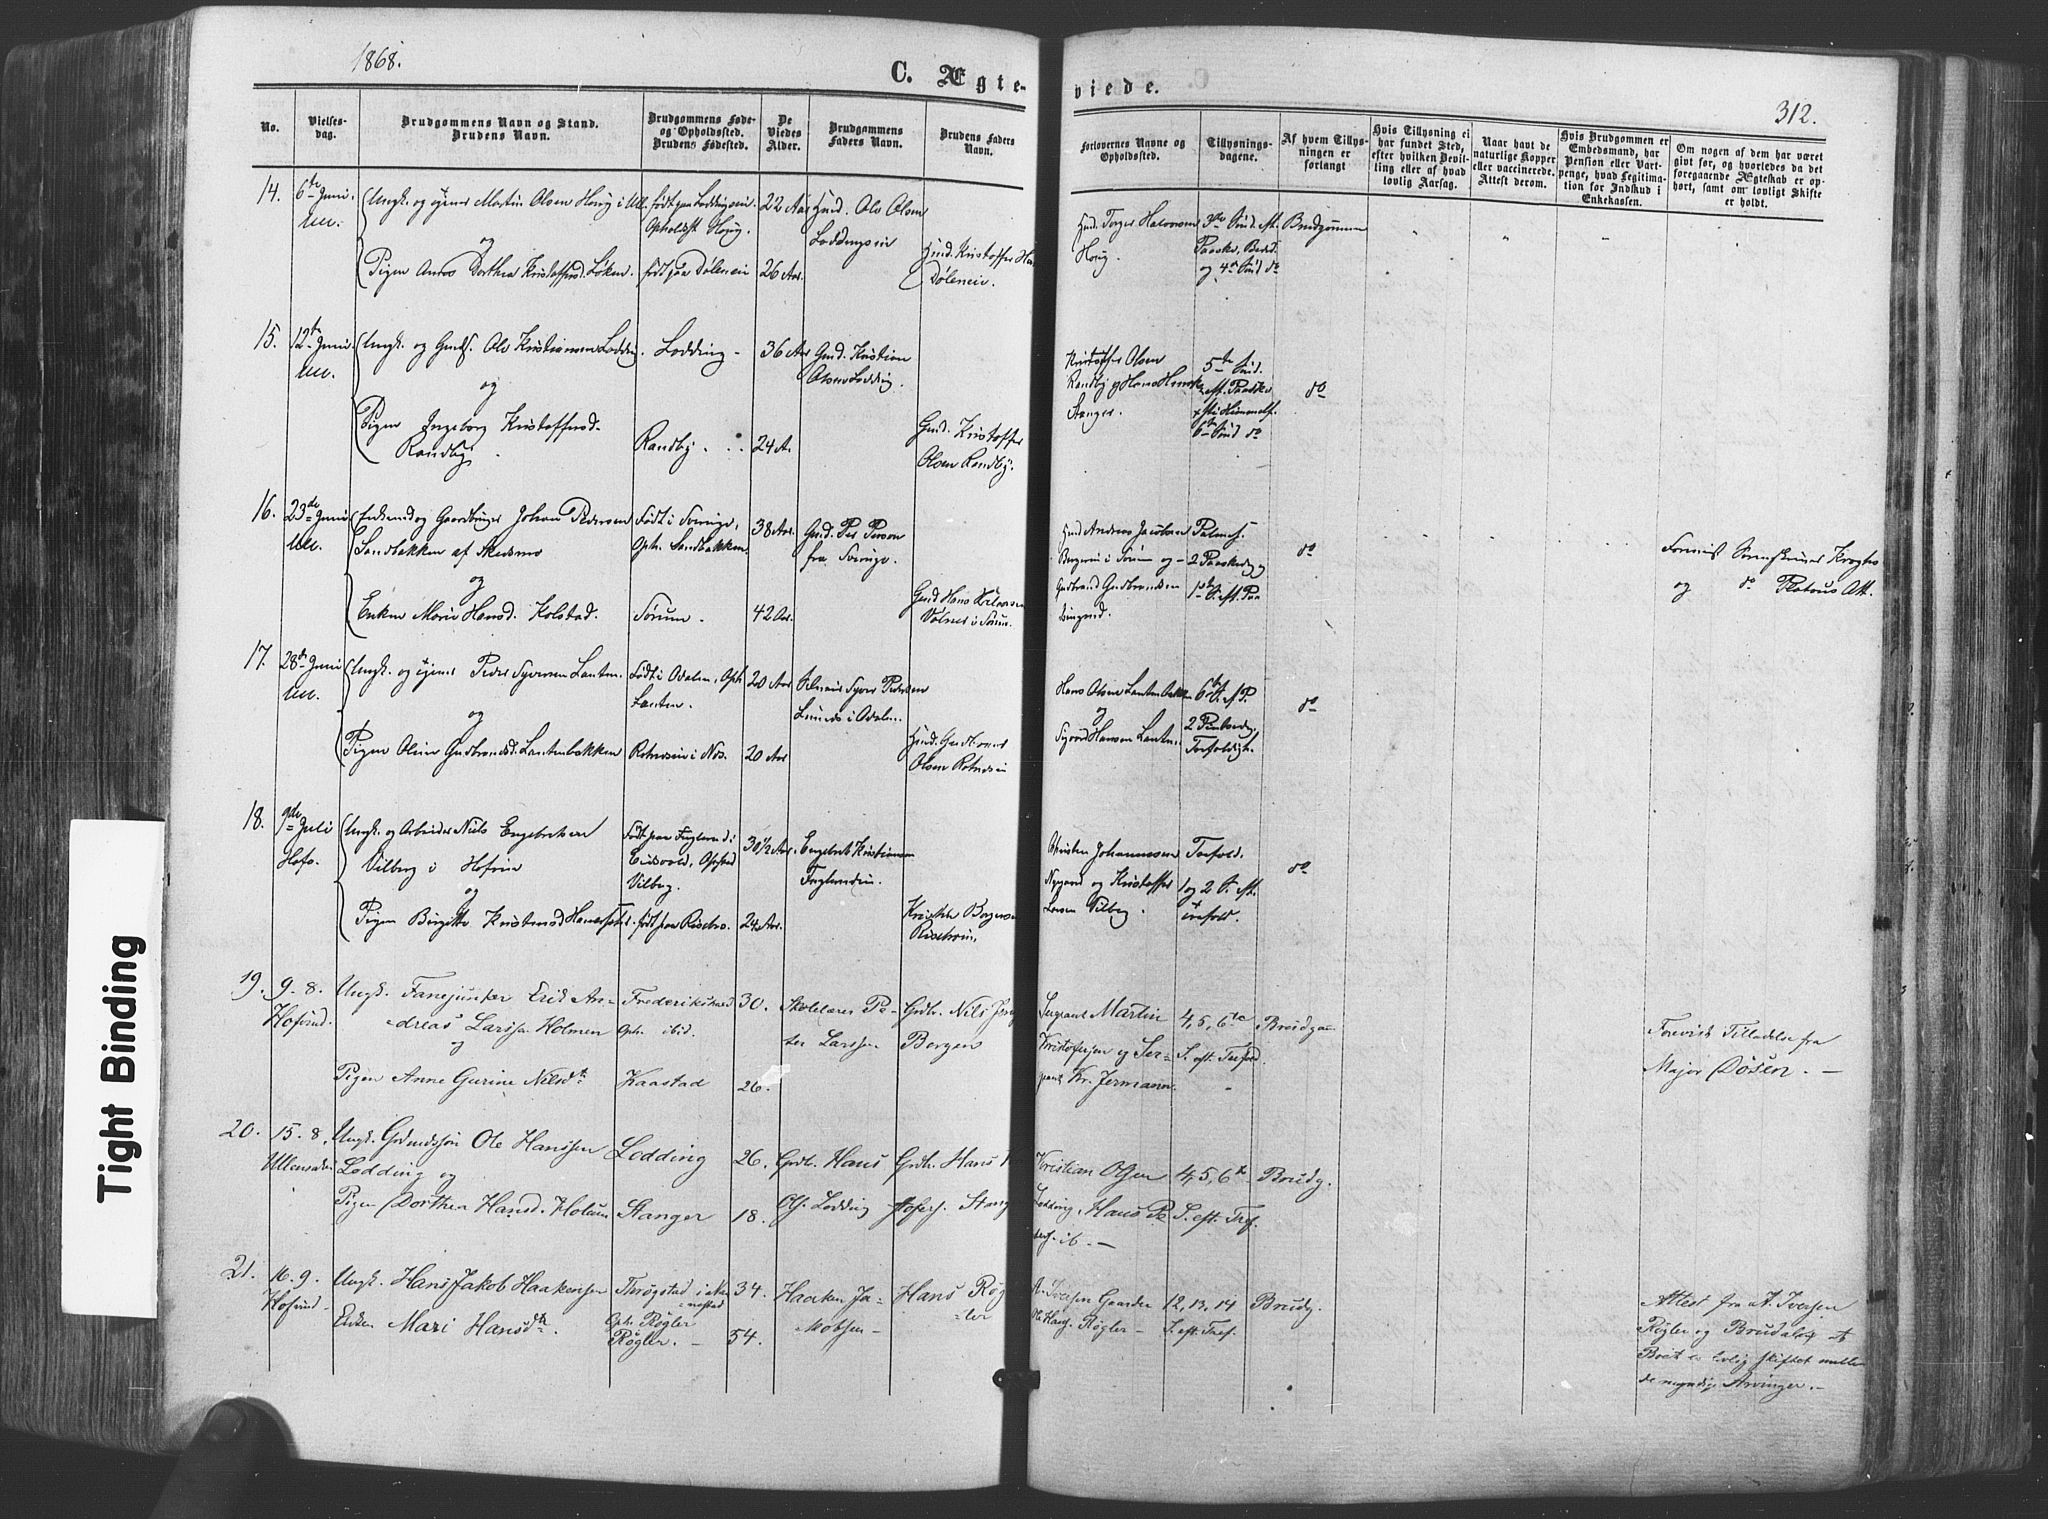 1868.
C. Ægte-
viede.
312.
No.
Vielses-
dag.
Brudgommens Navn og Stand.
Brudens Navn.
Brudgommens Føde-
og Opholdssted.
Brudens Fødested.
De
Viedes
Alder.
Brudgommens
Faders Navn.
Brudens Faders
Navn.
Forlovernes Navne og
Opholdssted.
Tillysnings-
dagene.
Af hvem Tillys-
ningen er
forlangt
Hvis Tillysning ei
har fundet Sted,
efter hvilken Bevil-
ling eller af hvad
lovlig Aarsag.
Naar havt de
naturlige Kopper
eller vaccinerede.
Attest derom.
Hvis Brudgommen er
Embedsmand, har
Pension eller Vart-
penge, hvad Legitima-
tion for Indskud i
Enkekassen.
Om nogen af dem har været
gift før, og hvorledes da det
foregaaende Ægteskab er op-
hørt, samt om lovligt Skifte
er holdt.
14. 6te Juni Ull.
Ungk. og Martin Olsen Horig i Ull.
og
Pigen Anne Dorthea Kristoffersd. Løken.
født paa Loddingseie.
Opholdsst Horig.
født paa Døleneie
22 Aar
26 Aar.
Gmd. Ole Olsen
Loddingseie
Gmd. Kristoffer
Døleneie.
Gmd. Torger Halvorsen
Horig.
3die Sønd. eft.
Paaske, Beded.
og 4de Sønd do
Brudgommen
15. 12te Juni Ull.
Ungk. og Gmdf. Ole Kristiansen Lodding.
og
Pigen Ingeborg Kristoffersd.
Randby.
Lodding
Randby
36 Aar
24 A.
Gmd. Kristian
Olsen Lodding.
Gmd. Kristoffer
Olsen Randby.
Kristoffer Olsen
Randby og Hans
Stanger.
5te Sønd.
eft. Paaske
Kristi Himmelf.
6te Sønd do
do
16. 23de Juni Ull.
Enkemd og Gaardbruger Johan Pedersen
Sandbakken af Skedsmo
og
Enken Marie Hansd. Kolstad.
Født i Sverige,
Oph. Sandbakken.
Sørum.
38 Aar.
42 Aar.
Gmd. Per Person
fra Sverige.
Gmd Hans Halvorsen
Vølner i Sørum.
Gmd Andreas Jacobsen
i Sørum og
Gudbrand Gudbrandsen
Palmes.
2 Paaskedag
1ste S. eft. Paa
do
Forevist Sorenskriver Kroghs
og do Platous Att.
17. 28de Juni Ull.
Ungk. og Peder Syversen Lauten.
og
Pigen Oline Gudbrandsd. Lautenbakken
Født i Odalen, Oph
Lauten.
Rotneseie i Nes.
20 Aar
20 Aar
Syver Pedersen
i Odalen.
Gmd. Gudbrand
Olsen Rotneseie
Hans Olsen Lautenbakken
og
Hansen Lauten
6te S. e P.
2 Pintsedag,
Trefoldigh.
do
18. 9de Juli Hofv.
Ungk. og Arbeider Niels Engebretsen
Vilberg i Hofvin
og
Pigen Birgitte Kristensd Hammerstad.
Født paa Fuglerud i
Eidsvold, Opholdssted
Vilberg.
født paa Risebro.
30 1/2 Aar.
24 Aar.
Engebret Kristiansen
Kristen Borgersen
Christen Johannessen
Nygaard og Kristoffer
Larsen Vilberg.
Trefold.
1 og 2 S. eft.
trefold.
do
19. 9.-8. Hofvind.
Ungk. Fanejunker Erik An-
dreas Larssen Holmen
og
Pigen Anne Gurine Nilsdtr.
Frederikstad
Oph. ibid.
Kaastad
30.
26.
Skolelærer Pe-
ter Larssen
Grdbr. Nils
Borgen
Sergeant Martin
Kristofersen og Ser-
geant Kr. Jermann.
4, 5, 6te
S. eft. Trefold.
Brudgom
Forevist Tilladelse fra
Major Døsen. -
20. 15.8. Ullensaker
Ungk. Grdmdssøn Ole Hanssen
Lodding og
Pigen Dorthea Hansd. Holum
Lodding
Stanger
26.
18.
Grdbr. Hans
Ols. Lodding
Grdbr. Hans
Kristian Olsen
Lodding, Hans Pe
ders. ib.
4, 5, 6te
S. eft. Tref.
Brudg.
21. 16.9. Hofvind
Ungk. Hans Jakob Haakensen
Enken Mari Hansdtr.
Thrøgstad i
Oph. Røgler
Røgler.
34.
54.
Haaken Ja-
kobsen
Hans Røg-
ler
A. Iversen Gaarder
Ole Hans. Røgler
12, 13, 14
S. eft. Tref.
Brudg.
Attest fra A. Iversen
Røgler og at
Boet er lovlig skiftet mellem
de myndige Arvinger. -
Tight Binding